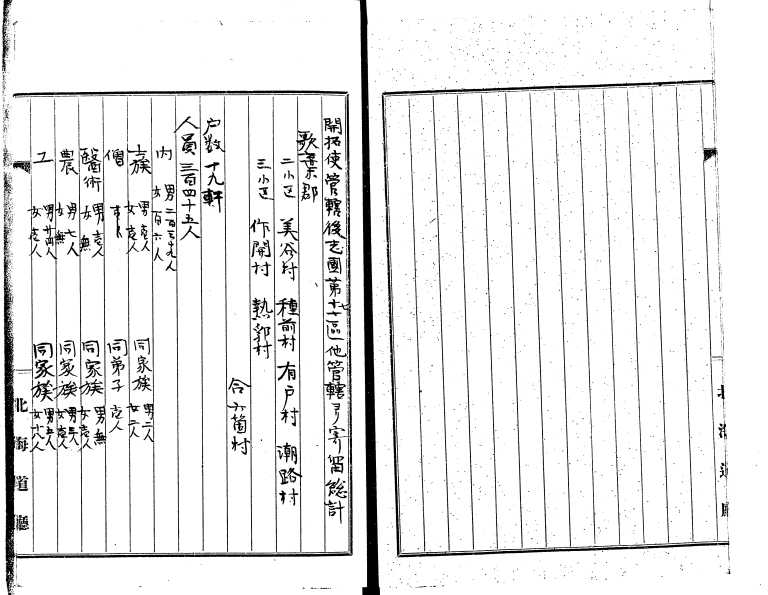 開拓使管轄後志國第十七區他管轄ヨリ寄留総計
歌棄郡
二小区 美谷村 種前村 有戸村 潮路村
三小区 作開村 熱郛村
合六箇村
戸数 十九軒
人員 三百四十五人
内 男 二百三十九人 女 百六人
士族 男 壱人 女 壱人 同家族 男 二人 女 二人
僧 同弟子 壱人
醫術 男 壱人 女 無 同家族 男 無 女 壱人
農 男 七人 女 無 同家族 女 壱人
工 男 廿四人 女 壱人 同家族 男 五人 女 十八人
北海道廳
北海道廳